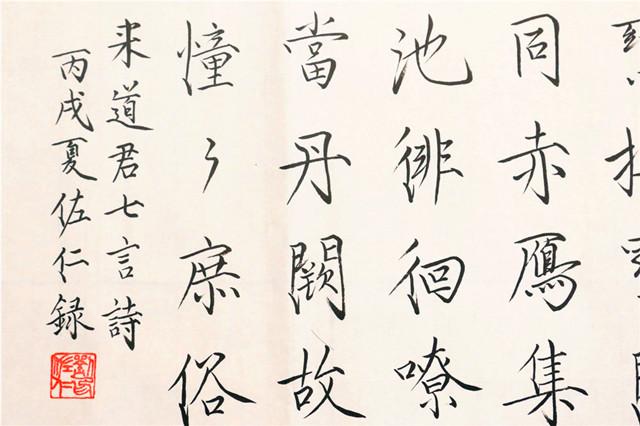 同赤鴈集
池徘徊嘹
當丹闕故
憧々庶俗
来道君七言詩
丙戌夏佐仁録